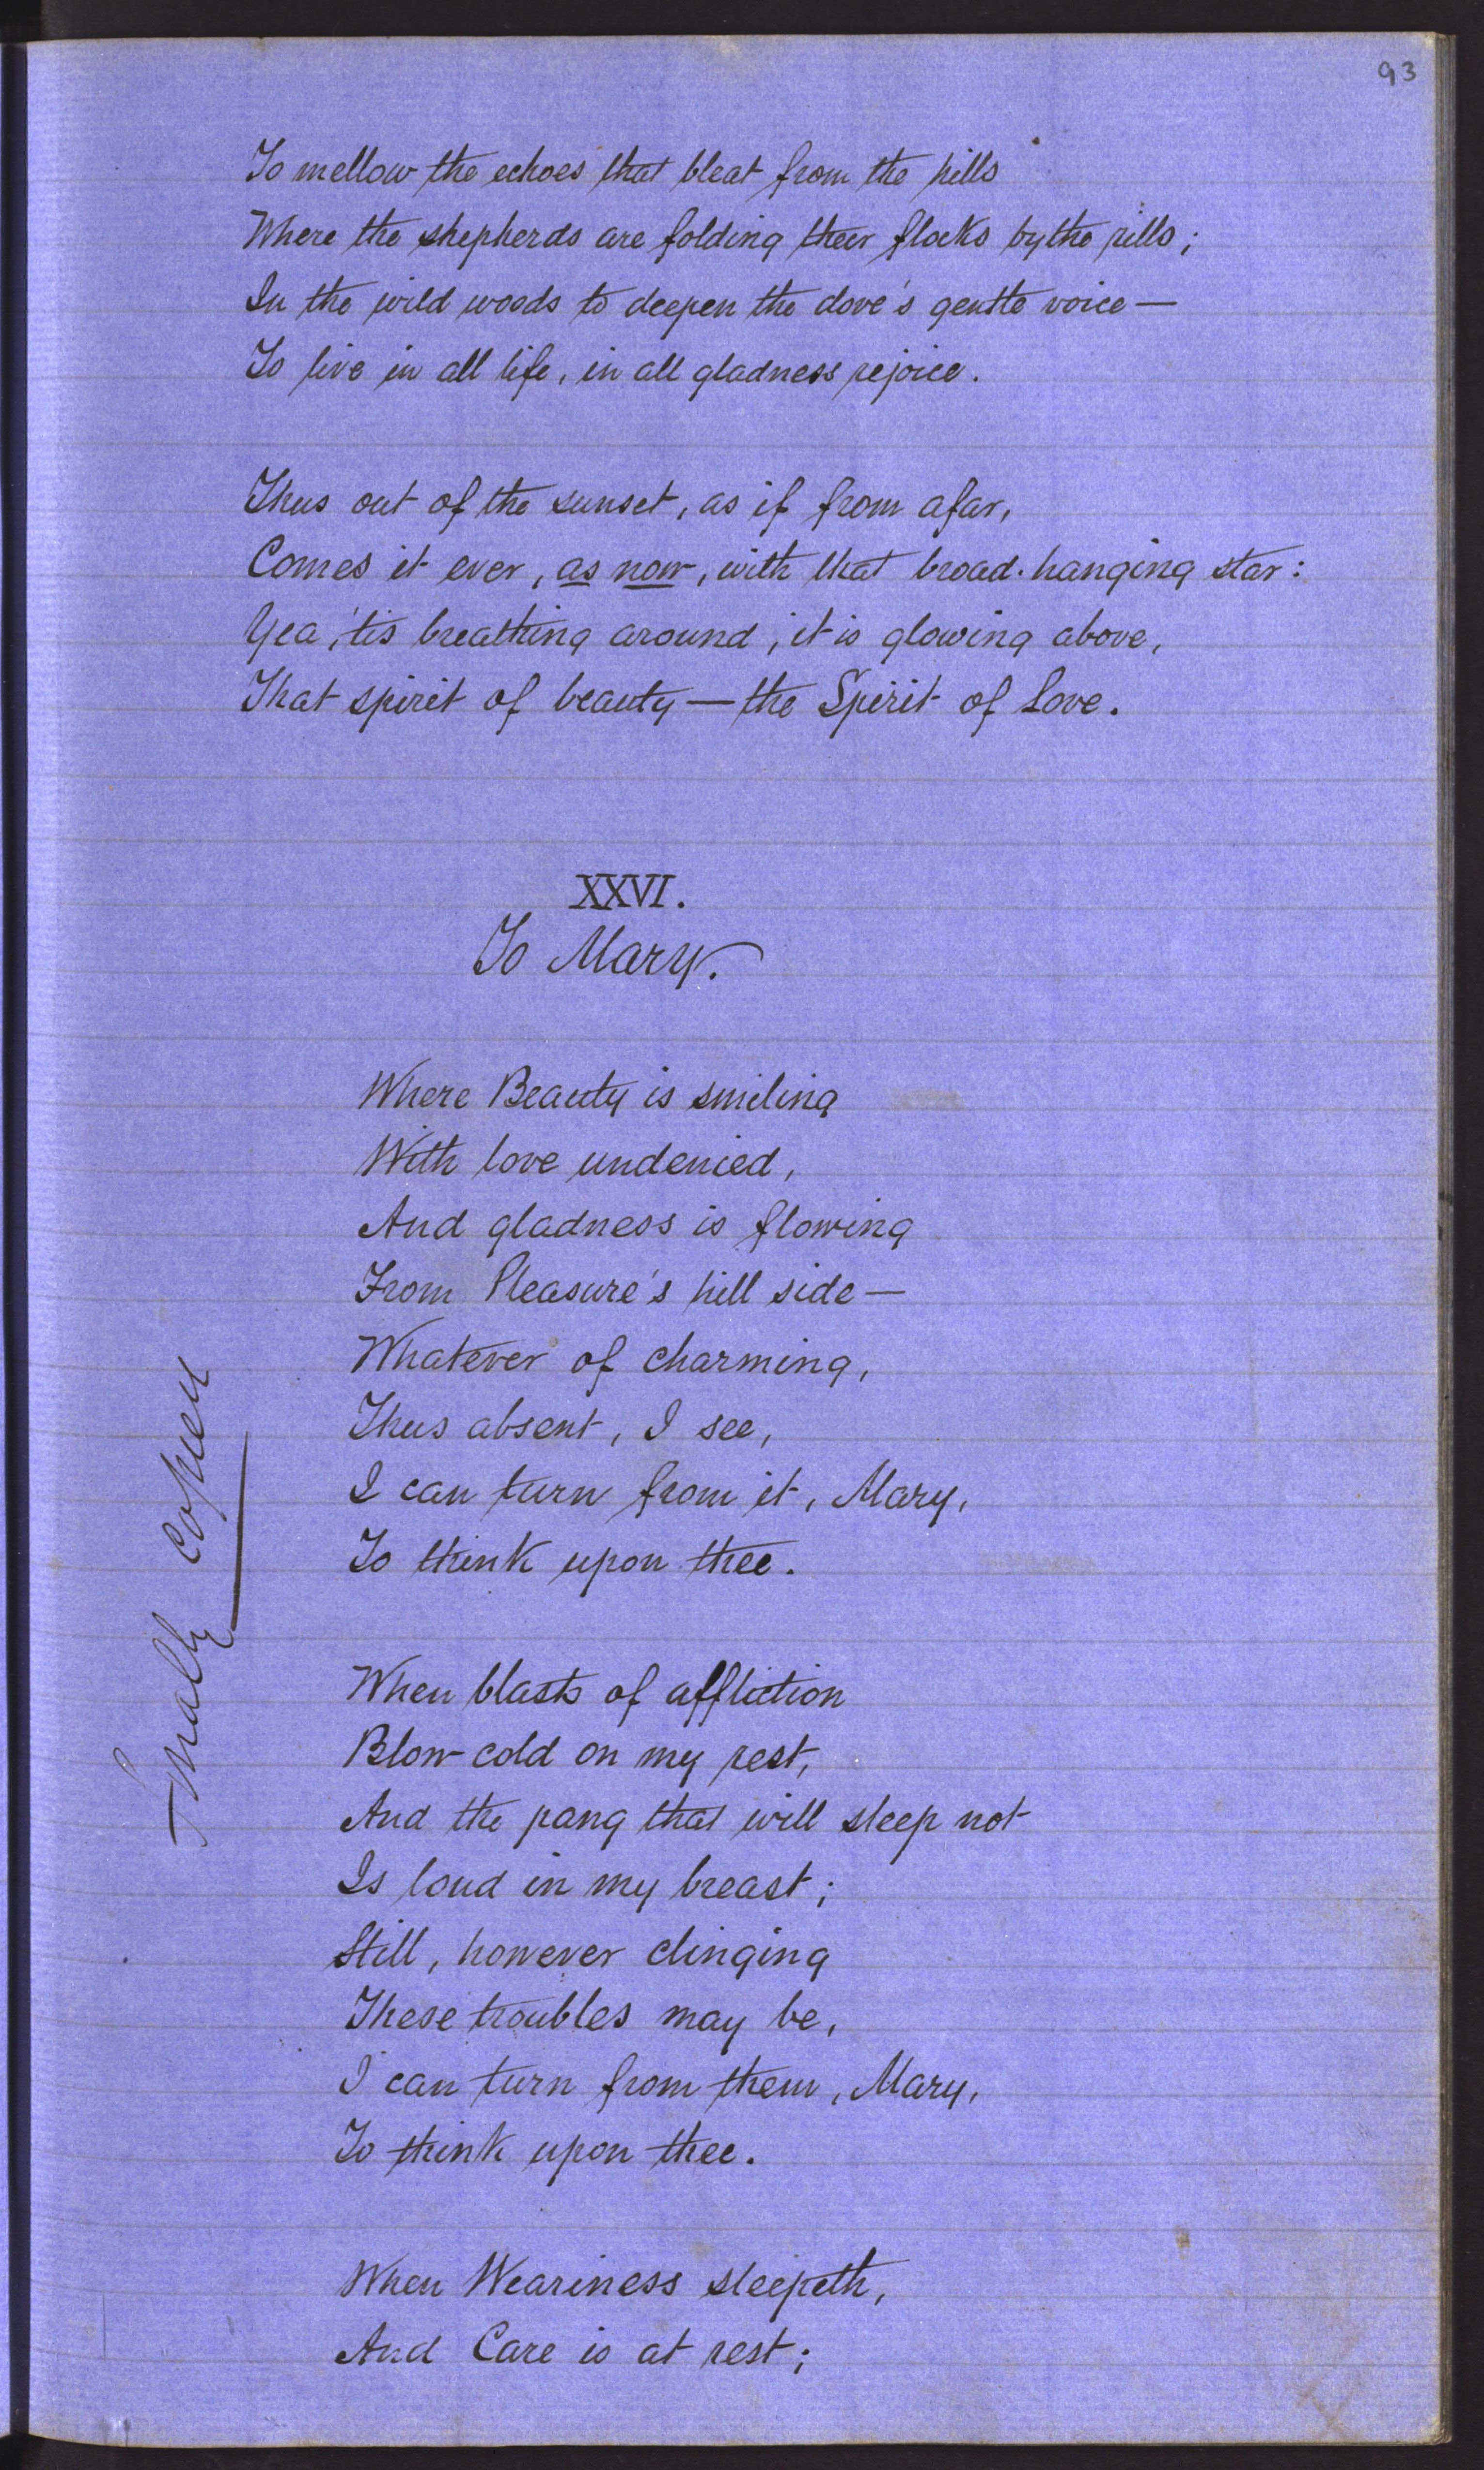 93
To mellow the echoes that bleat from the hills
Where the shepherds are folding their flocks by the rills;
In the wild woods to deepen the dove's gentle voice—
To live in all life, in all gladness rejoice.
Thus out of the sunset, as if from afar,
Comes it ever, as now, with that broad-hanging star:
Yea, 'tis breathing around, it is glowing above,
That spirit of beauty—the Spirit of Love.
XXVI.
To Mary.
Where Beauty is smiling
With love undenied,
And gladness is flowing
From Pleasure's hill side—
Whatever of charming,
Thus absent, I see,
I can turn from it, Mary,
To think upon thee.
Finally copied
When blasts of affliction
Blow cold on my rest,
And the pang that will sleep not
Is loud in my breast;
Still, however clinging
These troubles may be,
I can turn from them, Mary,
To think upon thee.
When Weariness sleepeth,
And Care is at rest;